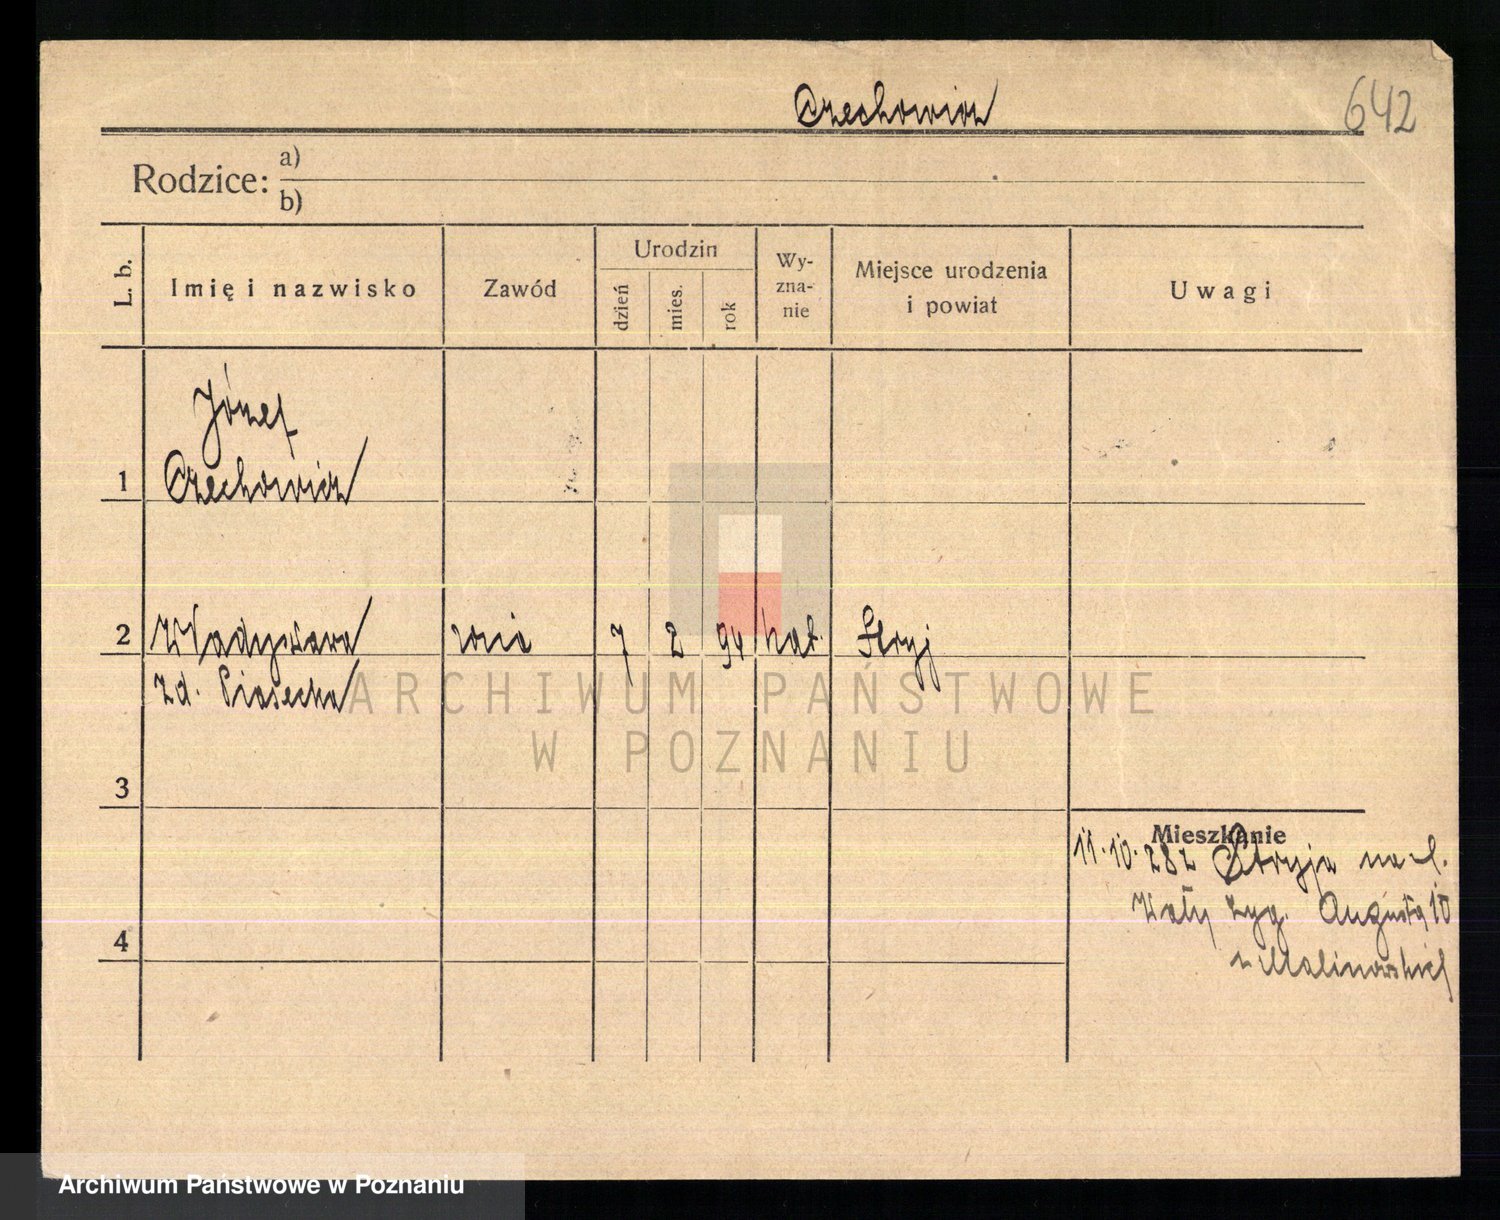 Czechowicz
642
Rodzice: a)
b)
L. b.
Imię i nazwisko
Zawód
Urodzin
dzień
mies.
rok
Wy-
zna-
nie
Miejsce urodzenia
i powiat
Uwagi
Józef
1 Czechowicz
2 Władysława żona 7 2 94 kat. Stryj
zd. Piasecka
ARCHIWUM PAŃSTWOWE
W POZNANIU
3
Mieszkanie
11.10.28 z Stryja na
4
Wały Zyg. Augusta 10
Archiwum Państwowe w Poznaniu